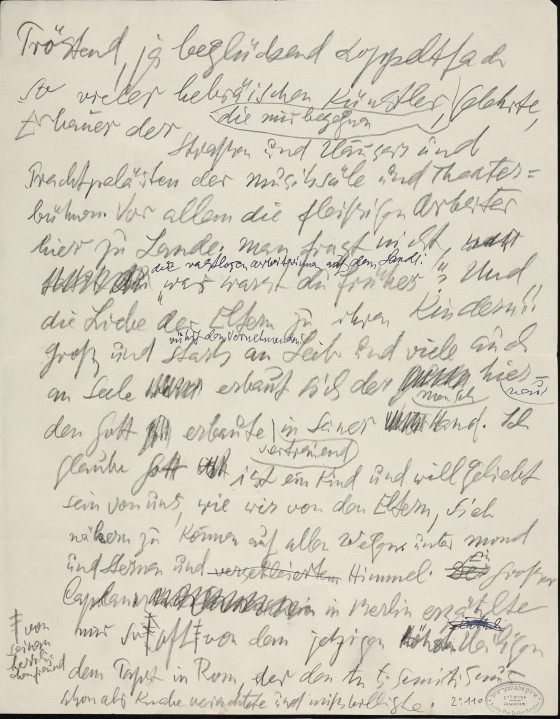 Tröstend, ja beglückend doppeltfach
so vieler hebräischen Künstler, Gelehrte,
die mir begegnen
Erbauer der Straßen und Häuser und
Prachtpalästen der Musiksäle und Theater=
bühnen. Vor allem die fleißigen Arbeiter
hier zu Lande. man fragt nicht,
die rastlosen arbeitenden auf dem Lande
"was warst du früher"? Und
die Liebe der Eltern zu ihren Kindern!!
nichts den Vornehmenden
Groß und stark an Leib und viele auch
an Seele erbaut sich der hier=
mensch neu
den Gott erbaute in seiner Hand. Ich
vertrauend
glaube Gott ist ein Kind und will geliebt
sein von uns, wie wir von den Eltern, sich
nähern zu können auf allen Wegen unter Mond
und Sternen und Himmel. Ein großer
Caplan in Berlin erzählte
mir oft von dem jetzigen heiligen
von seinem Herzensfreund
dem Papst in Rom, der den Antisemitismus
schon als Knabe verachtete und mißbilligte.
2:110